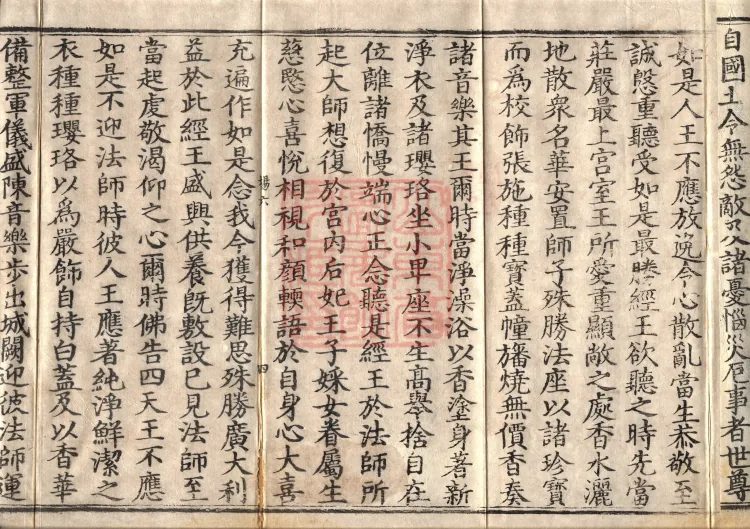 自國土令無怨敵及諸憂惱災厄事者世尊
如是人王不應放逸令心散亂當生恭敬至
誠慇重聽受如是最勝經王欲聽之時先當
莊嚴最上宮室王所愛重顯敞之處香水灑
地散衆名華安置師子殊勝法座以諸珍寶
而爲校飾張施種種寶蓋幢旛燒無價香奏
諸音樂其王爾時當淨澡浴以香塗身著新
淨衣及諸瓔珞坐小卑座不生高舉捨自在
位離諸憍慢端心正念聽是經王於法師所
起大師想復於宮內后妃王子婇女眷屬生
慈愍心喜悅相視和顏輭語於自身心大喜
充遍作如是念我今獲得難思殊勝廣大利
益於此經王盛興供養旣敷設已見法師至
當起虔敬渴仰之心爾時佛告四天王不應
如是不迎法師時彼人王應著純淨鮮潔之
衣種種瓔珞以爲嚴飾自持白蓋及以香華
備整軍儀盛陳音樂步出城闕迎彼法師運